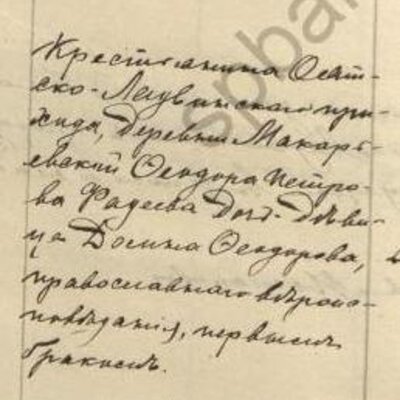 Крестьянина Оят-
ско-Ладвинскаго при-
хода, деревни Макарь-
евской Ѳеодора Петро-
ва Фадеева дочь-дѣви-
ца Домна Ѳеодорова,
православнаго вѣроис-
повѣданія, первымъ
бракомъ.
spba